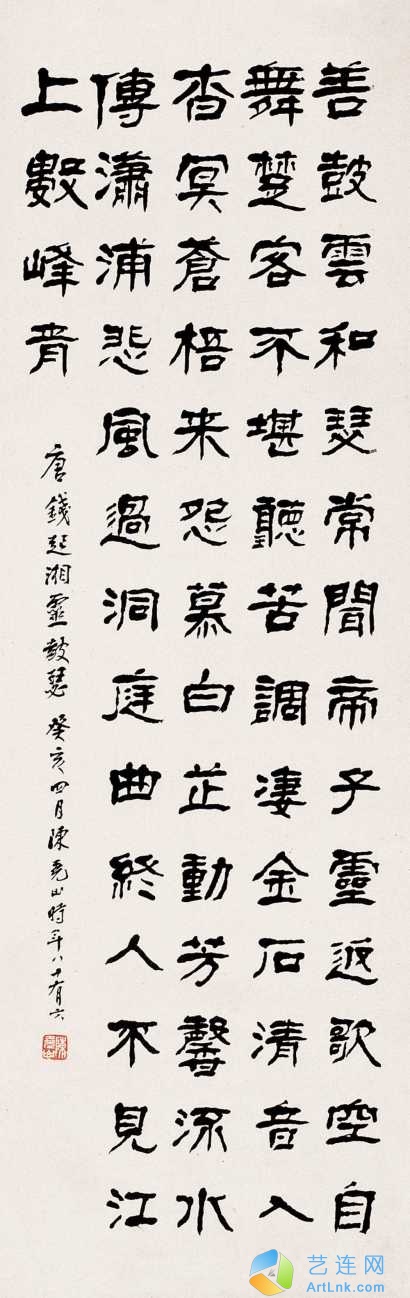 善鼓雲和瑟常聞帝子靈返歌空自
舞楚客不堪聽苦調淒金石清音入
杳冥蒼梧来怨慕白芷動芳馨流水
傳瀟浦悲風過洞庭曲終人不見江
上數峰青
唐錢起湘靈鼓瑟 癸亥四月陳堯山時年八十有六
艺连网
ArtLnk.com